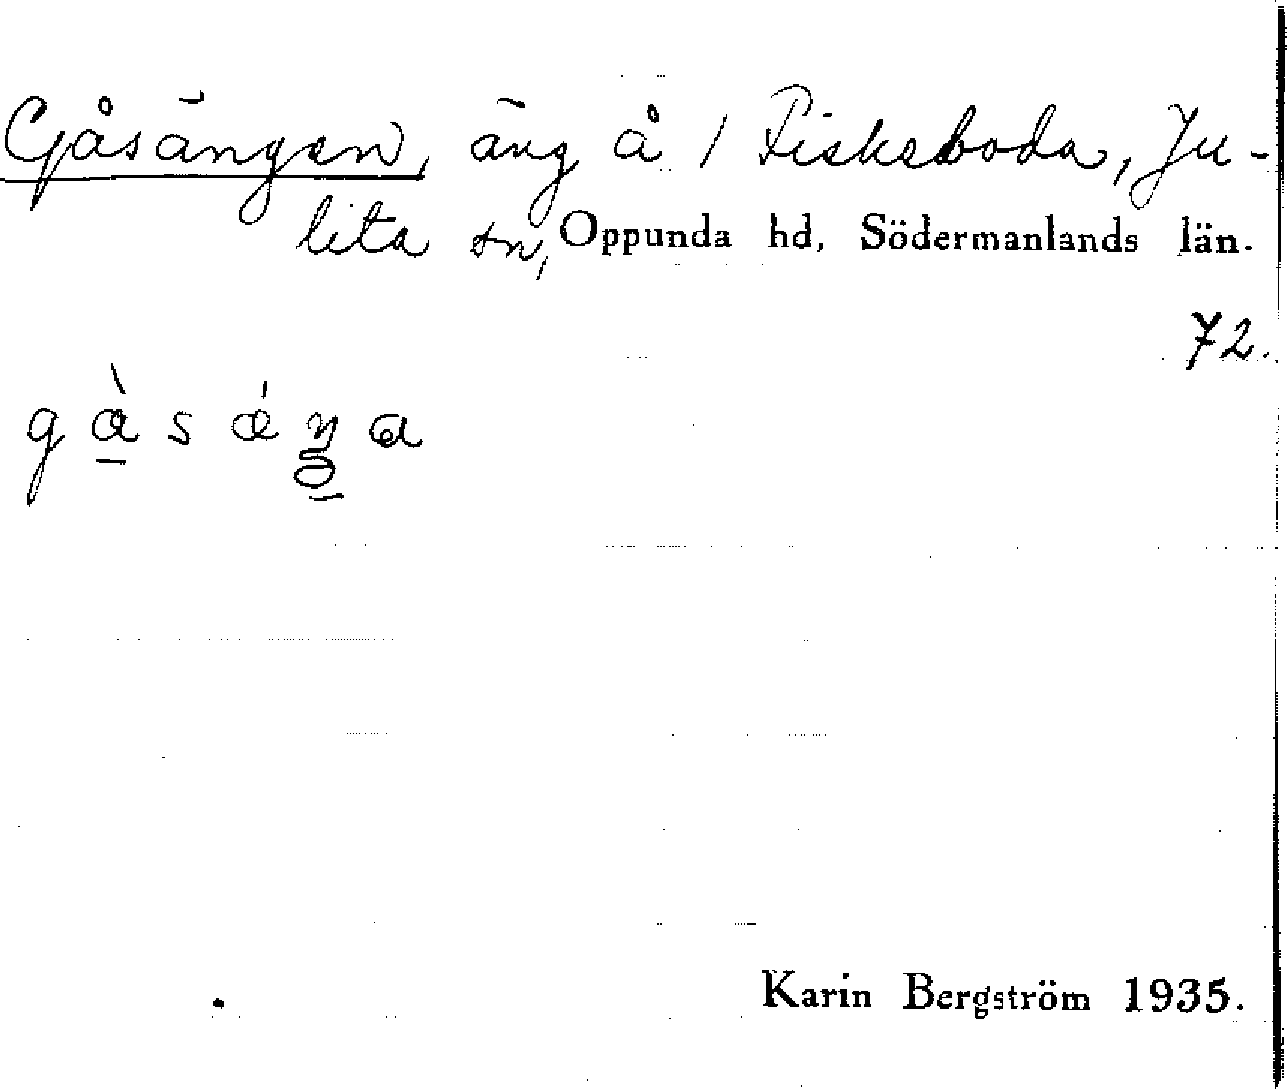 Gåsängen, äng å 1 Fiskeboda, Ju-
lita sn, Oppunda hd, Södermanlands län.
72.
Karin Bergström 1935.